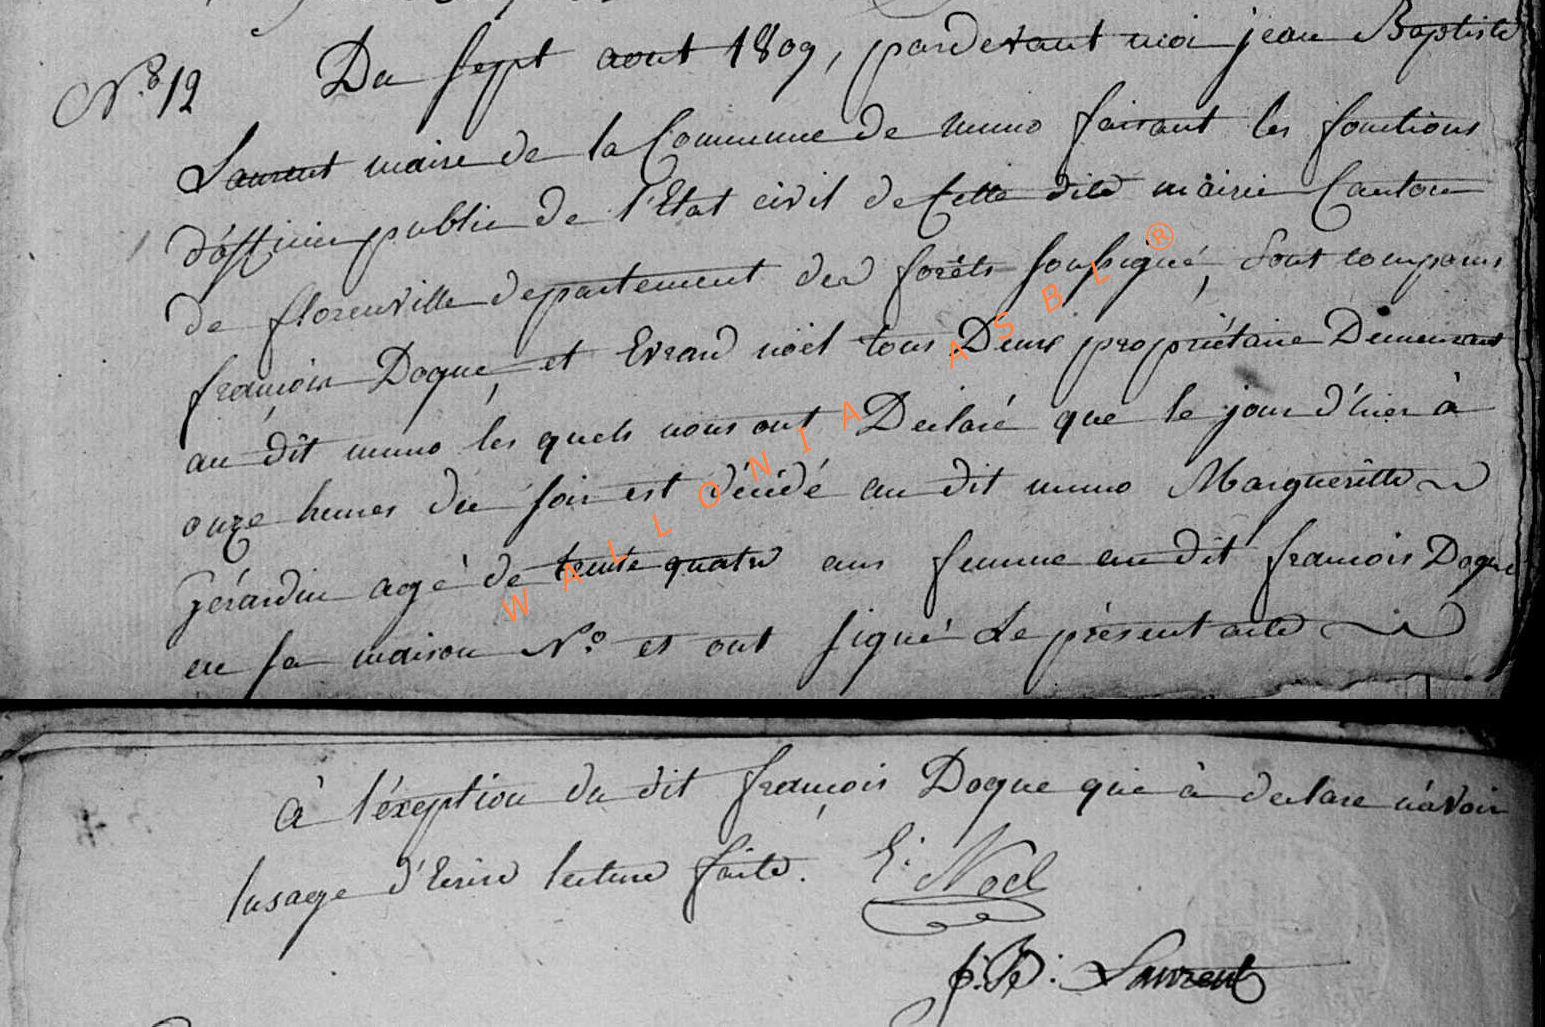 N.° 12
Du sept aout 1809, pardevant moi jean Baptiste
Laurent maire de la Commune de muno faisant les fonctions
d'officier public de l'Etat civil de Cette dite mairie Canton
de florenville departement des forêts soussigné, sont comparus
françois Doque, et Evrard noël tous Deux propriétaire Demeurant
au dit muno les quels nous ont Declaré que le jour d'hier à
onze heures du soir est décédé au dit muno Margueritte
Gérardin agé de trente quatre ans femme au dit françois Doque
en sa maison N.° et ont signé Le présent acte
à l'éxeption du dit françois Doque qui à declare n'avoir
lusage d'Ecrire lecture faite.
E. Noel
J: B: Laurent
WALLONIA ASBL ®